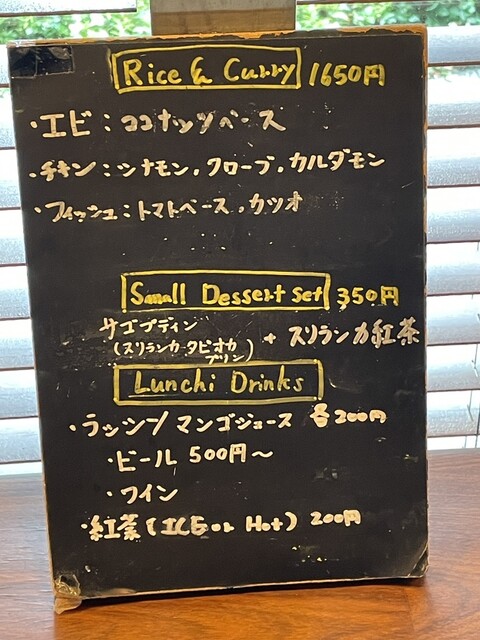 Rice & Curry 1650円
・エビ：ココナッツベース
・チキン：シナモン,クローブ,カルダモン
・フィッシュ：トマトベース,カツオ
Small Dessert Set 350円
サゴプディン + スリランカ紅茶
(スリランカ タピオカ
プリン)
Lunchi Drinks
・ラッシブ マンゴジュース 各200円
・ビール 500円〜
・ワイン
・紅茶 (ICE or Hot) 200円